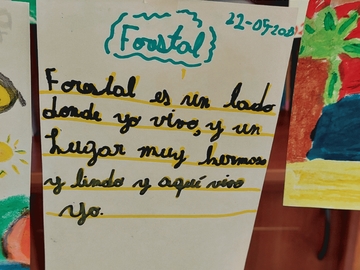 Forestal
22-09-202
Forestal es un lado
donde yo vivo, y un
lugar muy hermoso
y lindo y aquí vivo
yo.